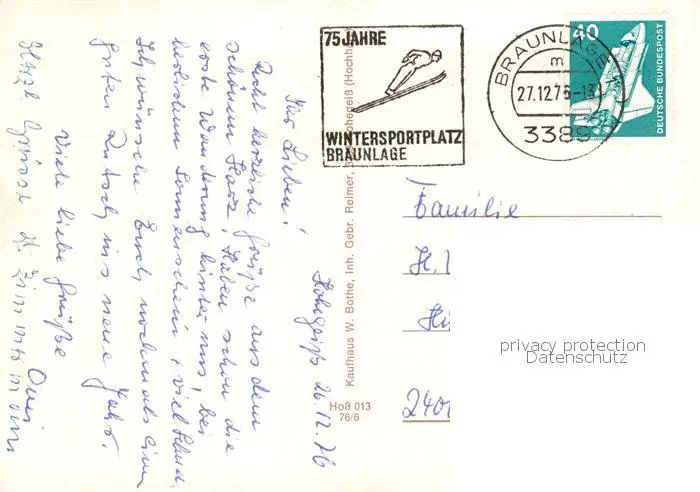 Hohegeiß 26.12.76
Ihr Lieben!
Recht herzliche Grüße aus dem
schönen Harz. Haben schon die
erste Wanderung hinter uns, bei
herrlichem Sonnenschein + viel Schnee.
Ich wünsche Euch nochmals einen
guten Rutsch ins neue Jahr.
Viele liebe Grüße
Omi
Herzl. Grüsse
Kaufhaus W. Bothe, Inh. Gebr. Reimer, Hohegeiß (Hochh
Hoß 013
76/6
75 JAHRE
WINTERSPORTPLATZ
BRAUNLAGE
BRAUNLAGE
m
27.12.76-13
3389
40
DEUTSCHE BUNDESPOST
Familie
H.
240
privacy protection
Datenschutz